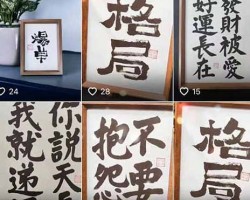 24
格局
28
發財被愛
好運長在
15
你說天
我就递
不要
抱怨
格局